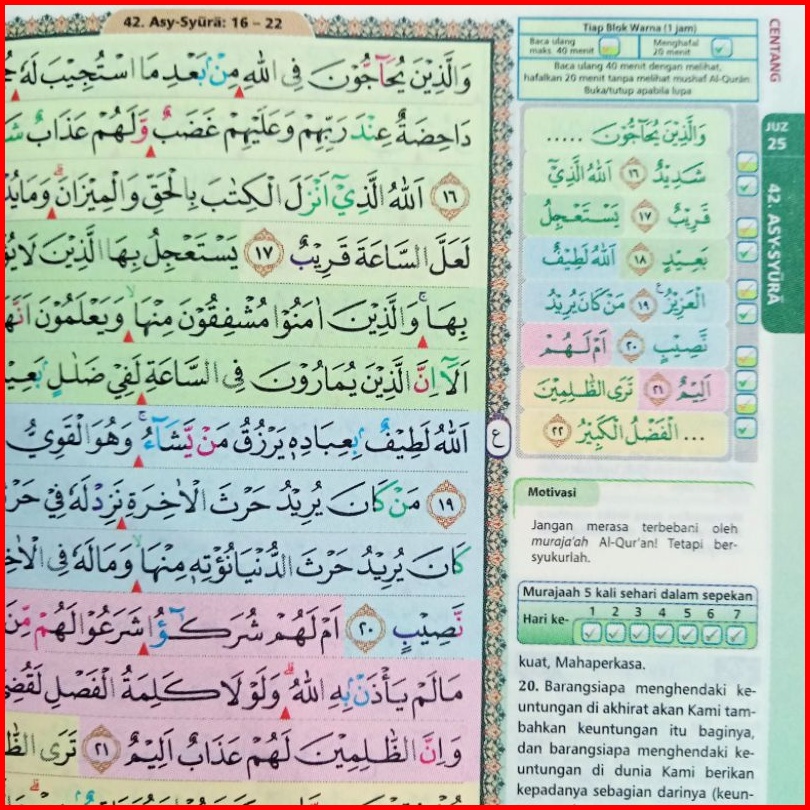 42. Asy-Syūrā: 16 – 22
وَالَّذِيْنَ يُحَاۤجُّوْنَ فِى اللّٰهِ مِنْۢ بَعْدِ مَا اسْتُجِيْبَ لَهٗ
دَاحِضَةٌ عِنْدَ رَبِّهِمْ وَعَلَيْهِمْ غَضَبٌ وَّلَهُمْ عَذَابٌ
١٦ اَللّٰهُ الَّذِيْٓ اَنْزَلَ الْكِتٰبَ بِالْحَقِّ وَالْمِيْزَانَ ۗ
لَعَلَّ السَّاعَةَ قَرِيْبٌ ١٧ يَسْتَعْجِلُ بِهَا الَّذِيْنَ
بِهَا ۚ وَالَّذِيْنَ اٰمَنُوْا مُشْفِقُوْنَ مِنْهَاۙ وَيَعْلَمُوْنَ
اَلَآ اِنَّ الَّذِيْنَ يُمَارُوْنَ فِى السَّاعَةِ لَفِيْ ضَلٰلٍۢ
اَللّٰهُ لَطِيْفٌۢ بِعِبَادِهٖ يَرْزُقُ مَنْ يَّشَاۤءُ ۚ وَهُوَ الْقَوِيُّ
١٩ مَنْ كَانَ يُرِيْدُ حَرْثَ الْاٰخِرَةِ نَزِدْ لَهٗ فِيْ
كَانَ يُرِيْدُ حَرْثَ الدُّنْيَا نُؤْتِهٖ مِنْهَاۙ وَمَا لَهٗ فِى
نَّصِيْبٍ ٢٠ اَمْ لَهُمْ شُرَكٰۤؤُا شَرَعُوْا لَهُمْ مِّنَ
مَا لَمْ يَأْذَنْۢ بِهِ اللّٰهُ ۗ وَلَوْلَا كَلِمَةُ الْفَصْلِ
وَاِنَّ الظّٰلِمِيْنَ لَهُمْ عَذَابٌ اَلِيْمٌ ٢١ تَرَى
ع
Tiap Blok Warna (1 jam)
Baca ulang maks 40 menit
Menghafal 20 menit
Baca ulang 40 menit dengan melihat,
hafalkan 20 menit tanpa melihat mushaf Al-Qurān.
Buka/tutup apabila lupa
CENTANG
وَالَّذِيْنَ يُحَاۤجُّوْنَ .....
شَدِيْدٌ ١٦ اَللّٰهُ الَّذِيْٓ
قَرِيْبٌ ١٧ يَسْتَعْجِلُ
بَعِيْدٍ ١٨ اَللّٰهُ لَطِيْفٌ
الْعَزِيْزُ ࣖ ١٩ مَنْ كَانَ يُرِيْدُ
نَّصِيْبٍ ٢٠ اَمْ لَهُمْ
اَلِيْمٌ ٢١ تَرَى الظّٰلِمِيْنَ
... الْفَضْلُ الْكَبِيْرُ ٢٢
JUZ
25
42 ASY-SYŪRĀ
Motivasi
Jangan merasa terbebani oleh
muraja'ah Al-Qur'an! Tetapi ber-
syukurlah.
Murajaah 5 kali sehari dalam sepekan
Hari ke- 1 2 3 4 5 6 7
kuat, Mahaperkasa.
20. Barangsiapa menghendaki ke-
untungan di akhirat akan Kami tam-
bahkan keuntungan itu baginya,
dan barangsiapa menghendaki ke-
untungan di dunia Kami berikan
kepadanya sebagian darinya (keun-